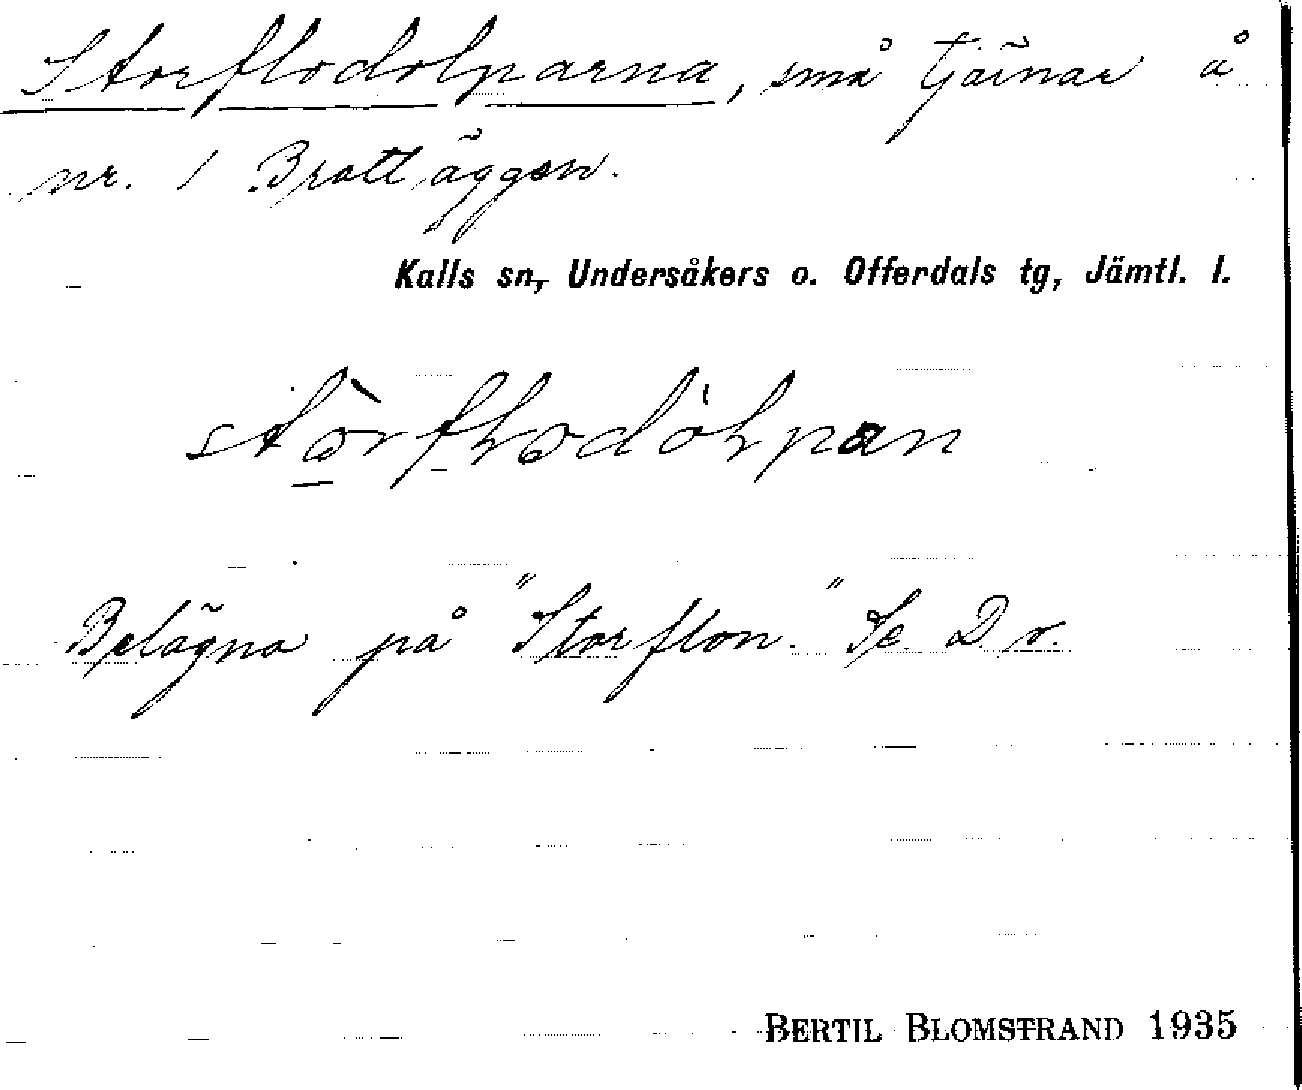 Storflodolparna, små tjärnar å
nr. 1 Brattäggen.
Kalls sn, Undersåkers o. Offerdals tg, Jämtl. l.
Belägna på "Storflon." Se D.o.
BERTIL BLOMSTRAND 1935